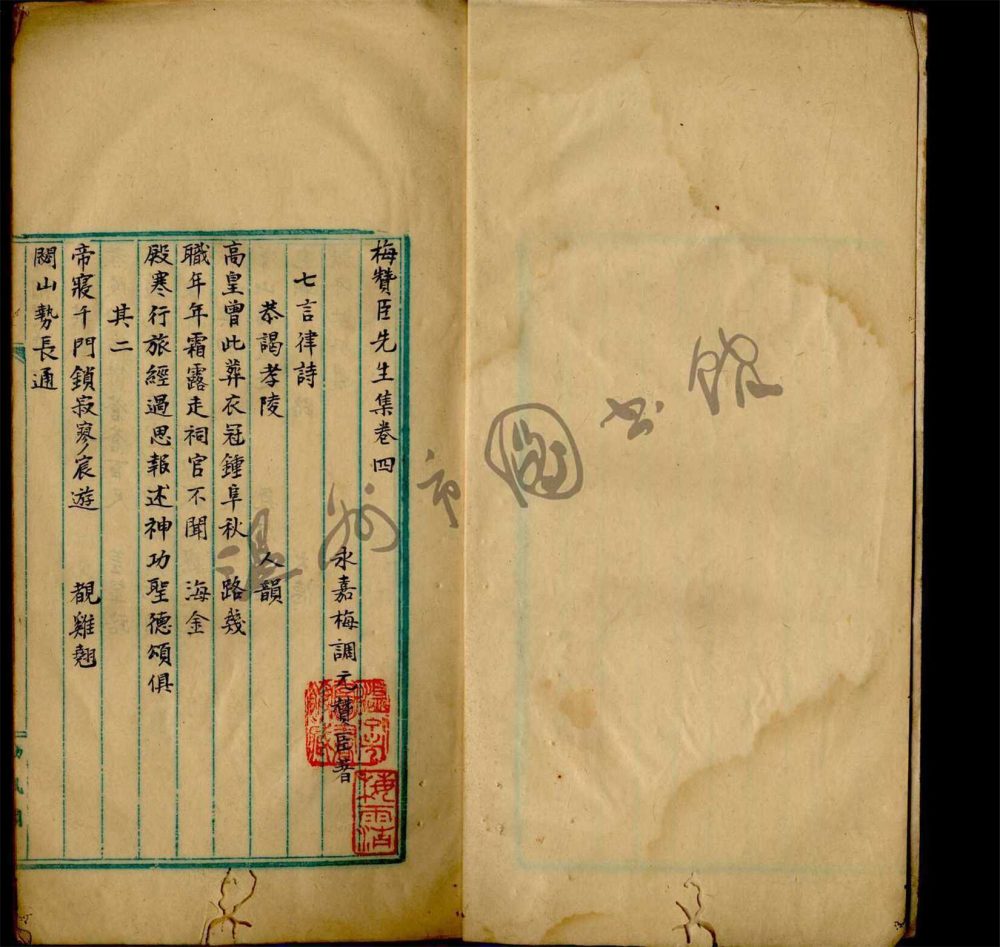 梅贊臣先生集卷四
永嘉梅調元贊臣著
七言律詩
恭謁孝陵 人韻
高皇曾此葬衣冠鍾阜秋 路幾
職年年霜露走祠官不聞 海金
殿寒行旅經過思報述神功聖德頌俱
其二
帝寢千門鎖寂寥宸遊 覩雞翹
闕山勢長通
溫州市圖書館